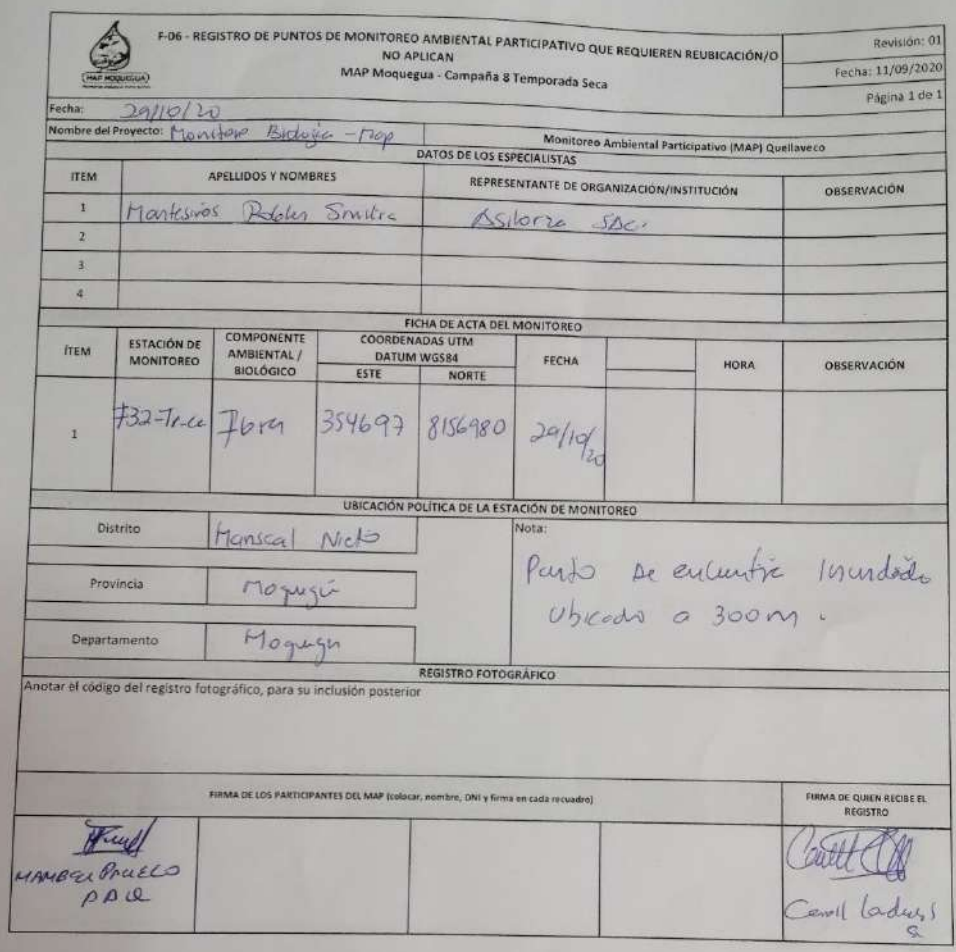 F-06 - REGISTRO DE PUNTOS DE MONITOREO AMBIENTAL PARTICIPATIVO QUE REQUIEREN REUBICACIÓN/O
NO APLICAN
MAP Moquegua - Campaña 8 Temporada Seca
MAP MOQUEGUA
Revisión: 01
Fecha: 11/09/2020
Página 1 de 1
Fecha: 29/10/20
Nombre del Proyecto: Monitoreo - Map
Monitoreo Ambiental Participativo (MAP) Quellaveco
DATOS DE LOS ESPECIALISTAS
ITEM APELLIDOS Y NOMBRES REPRESENTANTE DE ORGANIZACIÓN/INSTITUCIÓN OBSERVACIÓN
1 SAC.
2
3
4
FICHA DE ACTA DEL MONITOREO
ÍTEM ESTACIÓN DE MONITOREO COMPONENTE AMBIENTAL / BIOLÓGICO COORDENADAS UTM DATUM WGS84 ESTE NORTE FECHA HORA OBSERVACIÓN
1 354697 8156980 29/10/20
UBICACIÓN POLÍTICA DE LA ESTACIÓN DE MONITOREO
Distrito Mariscal Nieto
Provincia
Departamento
Nota:
Punto se
Ubicado a 300m.
REGISTRO FOTOGRÁFICO
Anotar el código del registro fotográfico, para su inclusión posterior
FIRMA DE LOS PARTICIPANTES DEL MAP (colocar, nombre, DNI y firma en cada recuadro)
FIRMA DE QUIEN RECIBE EL
REGISTRO